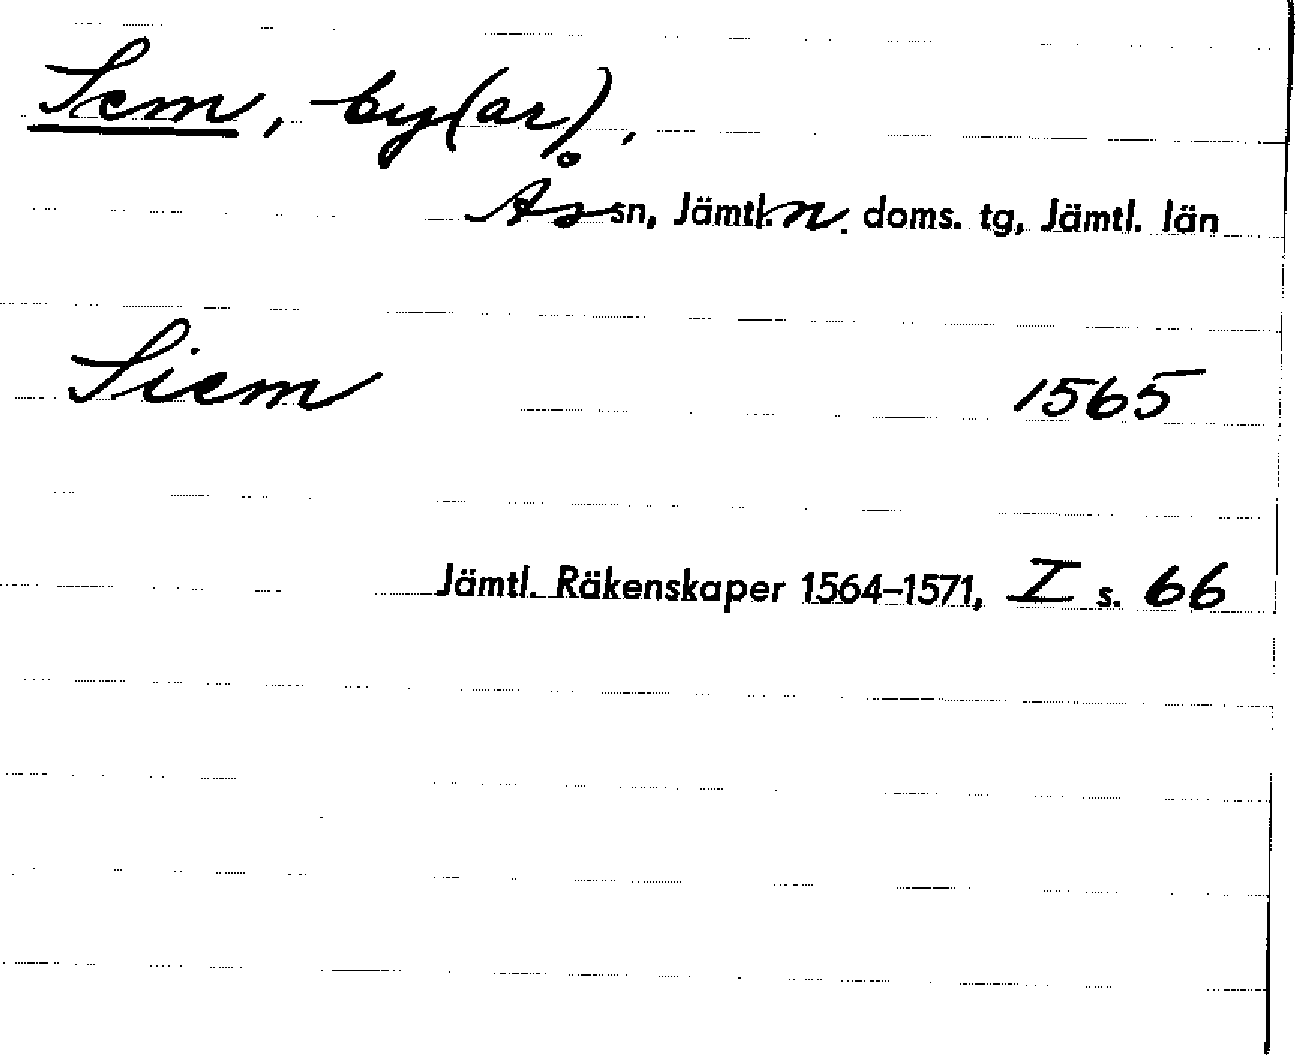 Sem, by(ar),
Ås sn, Jämtl. n. doms. tg, Jämtl. län
Siem 1565
Jämtl. Räkenskaper 1564–1571, I s. 66